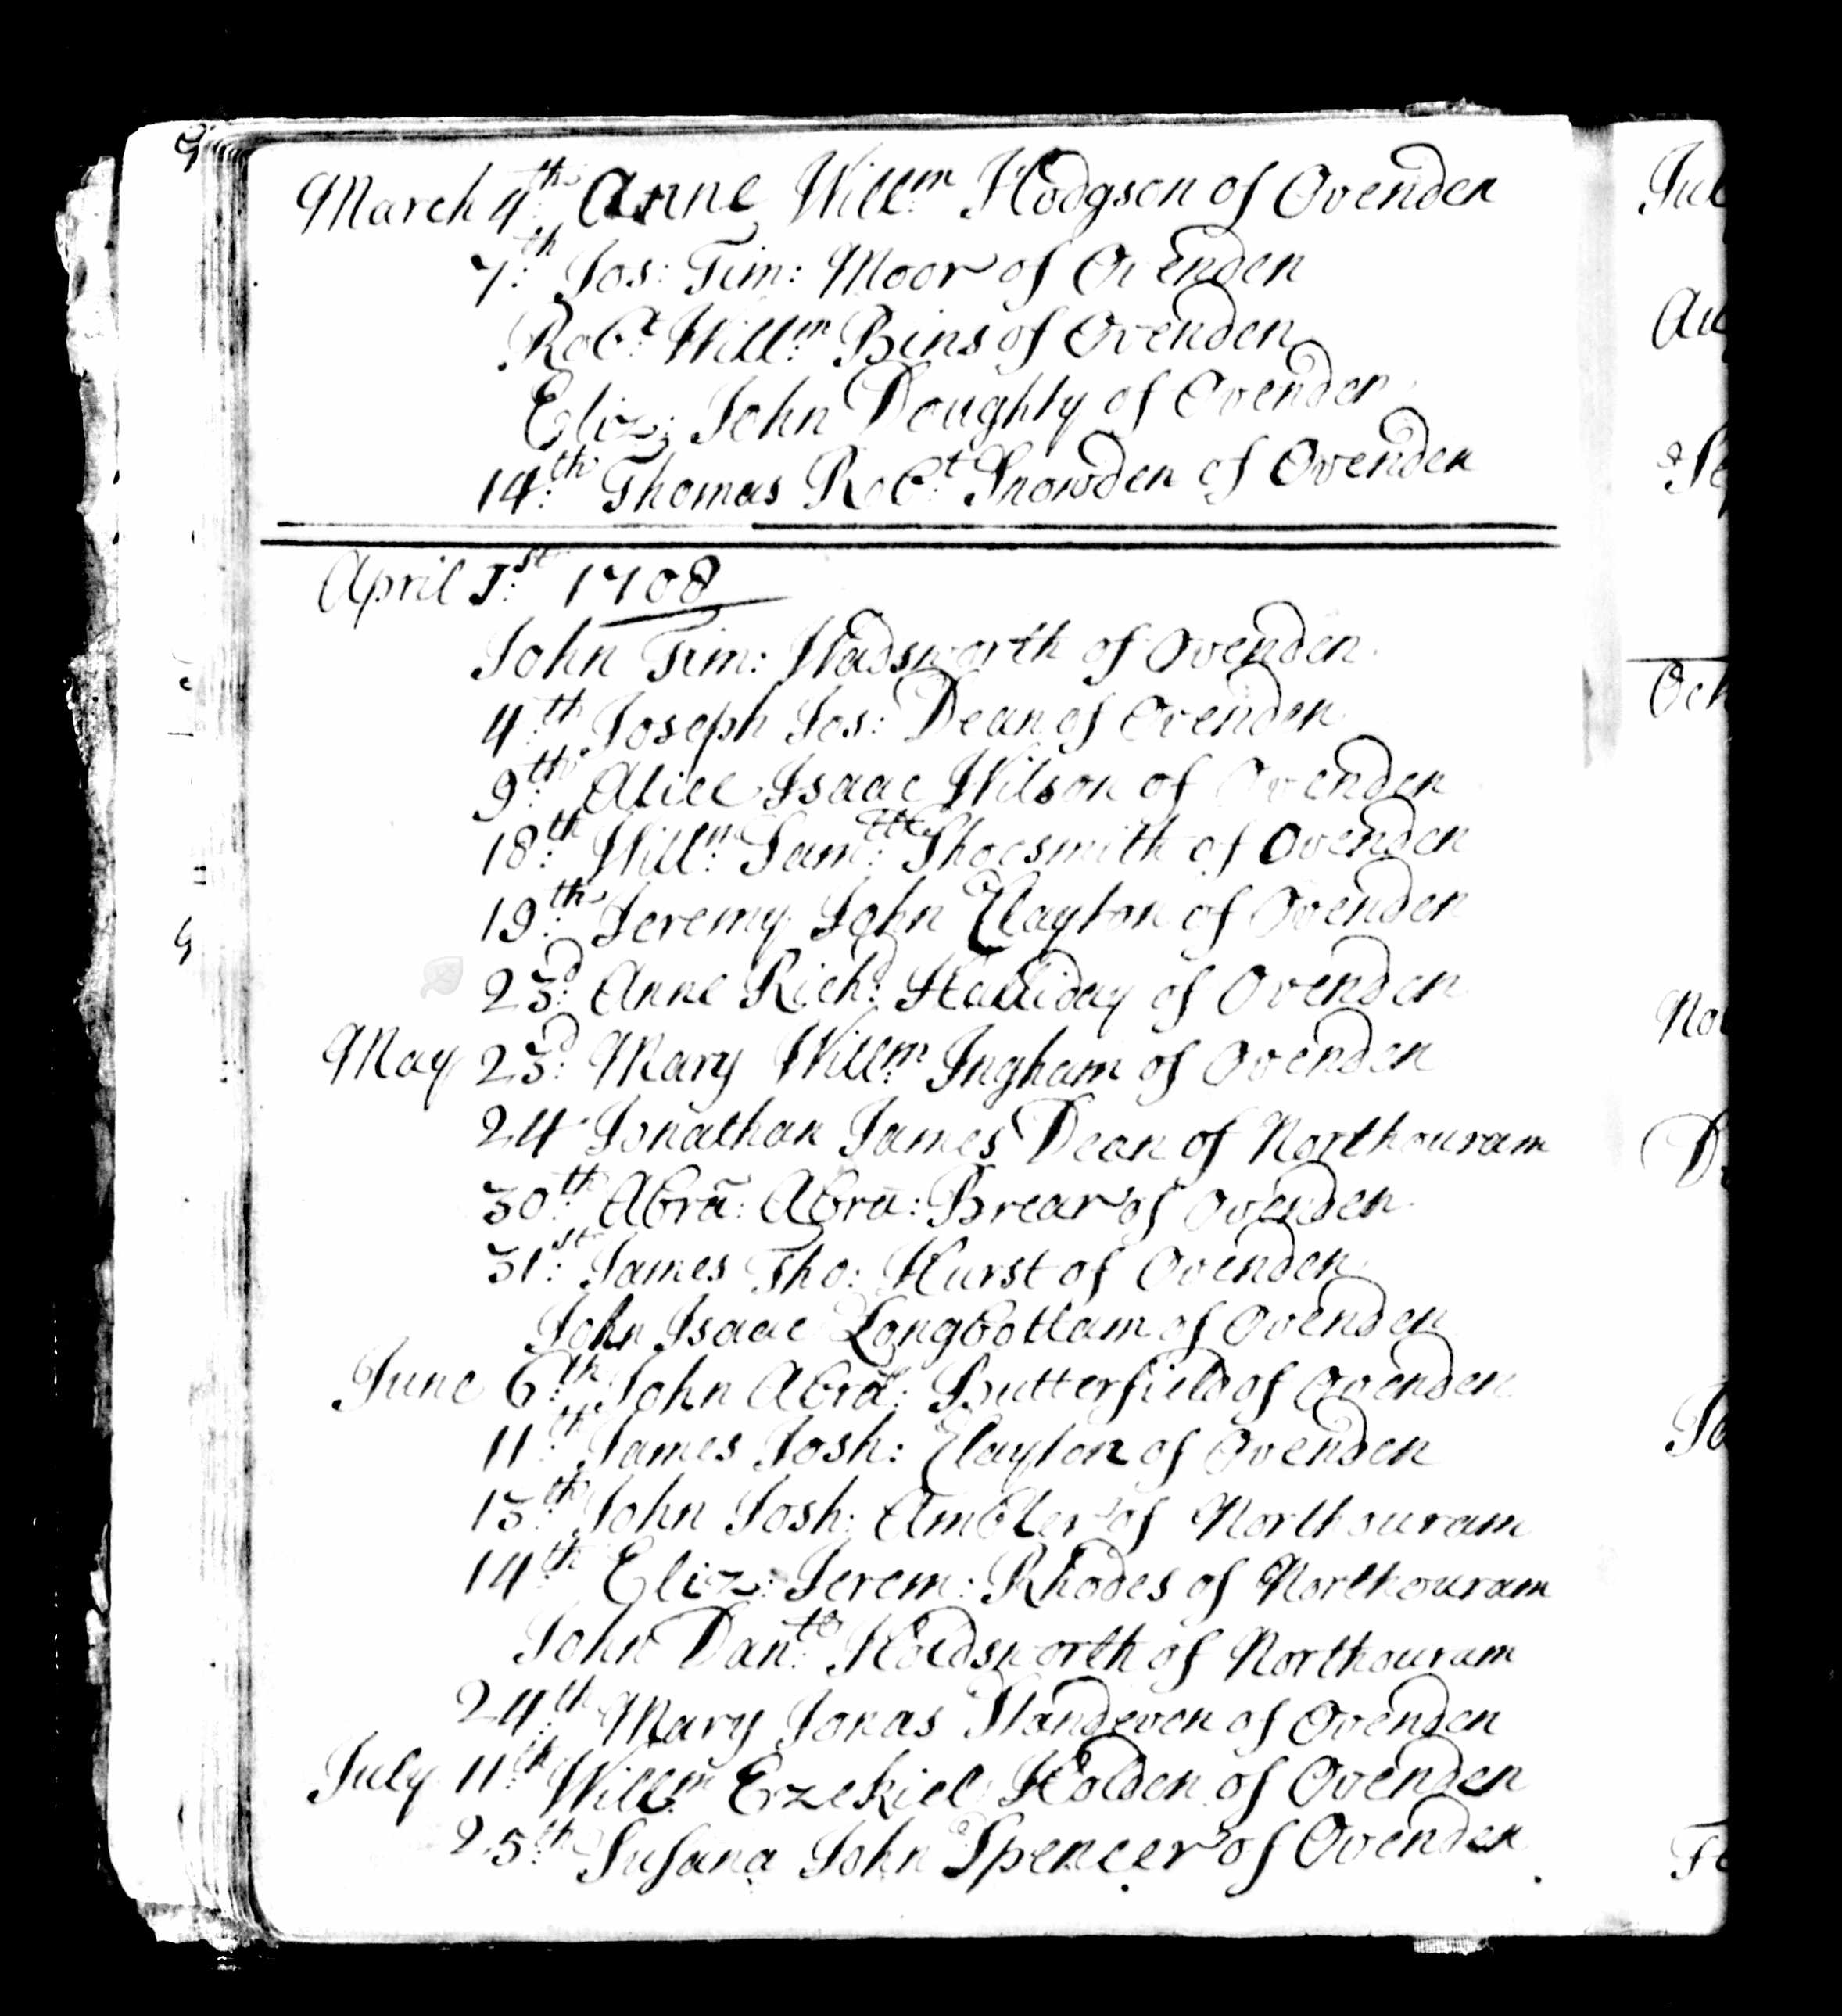 March 4th. Anne Willm. Hodgson of Ovenden
7th. Jos: Tim: Moor of Ovenden
Robt. Willm. Bins of Ovenden
Eliz: John Doughty of Ovenden
14th. Thomas Robt. Snowden of Ovenden
April 1st. 1708
John Tim: Wadsworth of Ovenden
4th. Joseph Jos: Dean of Ovenden
9th. Alice Isaac Wilson of Ovenden
18th. Willm. Samll. Shoesmith of Ovenden
19th. Jeremy John Clayton of Ovenden
23d. Anne Richd. Halliday of Ovenden
May 23d. Mary Willm. Ingham of Ovenden
24 Jonathan James Dean of Northouram
30th. Abrā: Abrā: Brear of Ovenden
31st. James Tho: Hurst of Ovenden
John Isaac Longbottam of Ovenden
June 6th. John Abrā: Butterfield of Ovenden
11th. James Josh: Clayton of Ovenden
13th. John Josh: Ambler of Northouram
14th. Eliz: Jerem: Rhodes of Northouram
John Danll. Holdsworth of Northouram
24th. Mary Jonas Standeven of Ovenden
July 11th. Willm. Ezekiel Holden of Ovenden
25th. Susana John Spencer of Ovenden